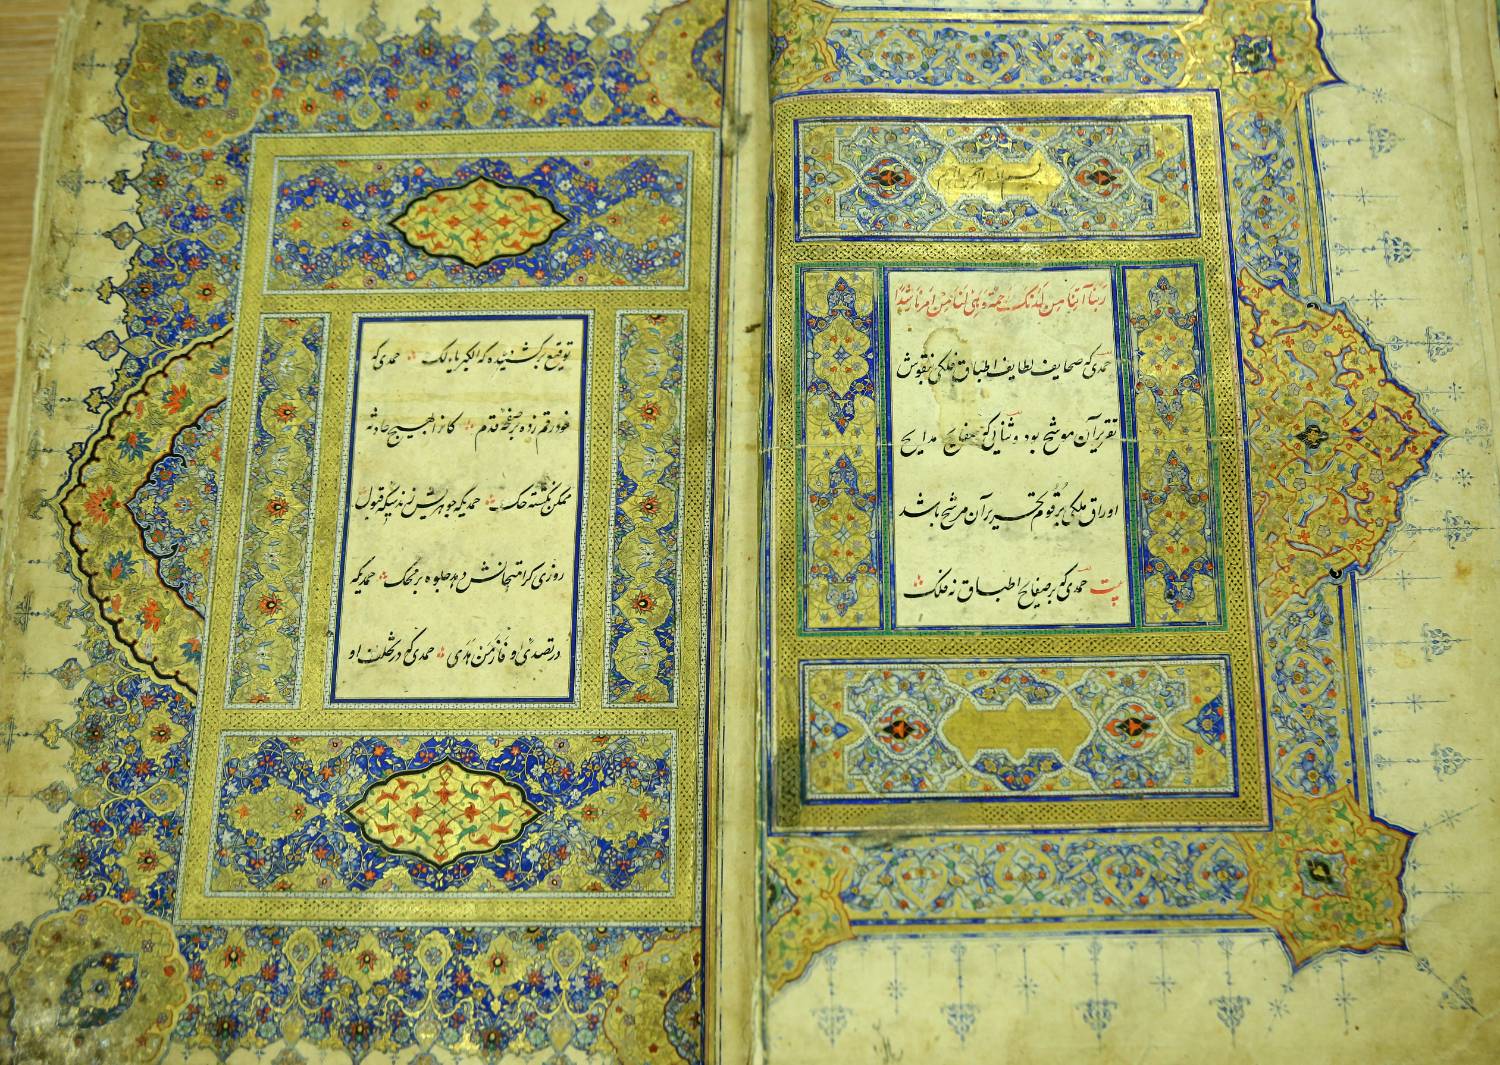 بسم الله الرحمن الرحیم
ربنا آتنا من لدنک رحمة وهیئ لنا من امرنا رشدا
حمدی که صحایف لطایف اطباق فلکی بنقوش
تقریر آن موشح بود و ثنایی که صفایح مدایح
اوراق ملکی برقوم تحریر آن مرشح باشد
بیت حمدی که بر صفایح اطباق نه فلک
توقیع برکشیده که الکبریاء لک حمدی که
خود رقم زده بر صفحهٔ قدم کانرا بهیچ حادثه
ممکن نگشته حک حمدیکه جوهریش زند سکه قبول
روزی که امتحانش دهد جلوه بر محک حمدیکه
در تصدی او فاز من هدی حمدی که در تخلف او